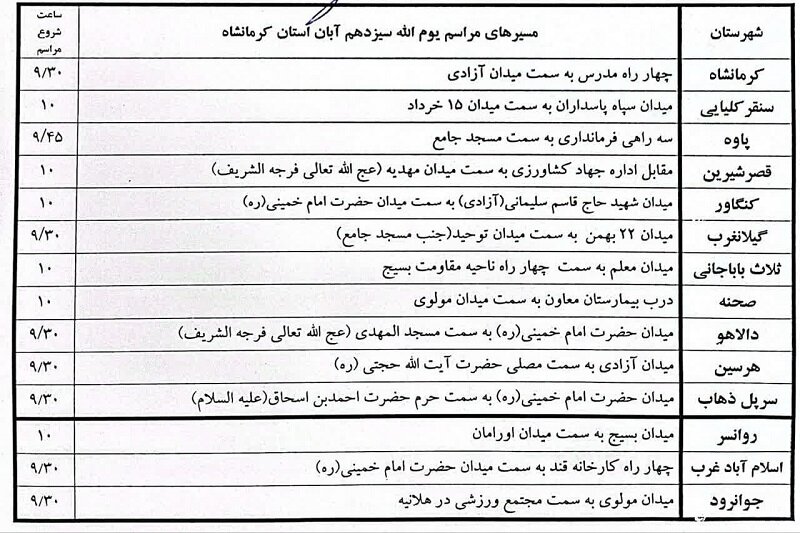 شهرستان مسیرهای مراسم یوم الله سیزدهم آبان استان کرمانشاه ساعت شروع مراسم
کرمانشاه چهار راه مدرس به سمت میدان آزادی ۹/۳۰
سنقرکلیایی میدان سپاه پاسداران به سمت میدان ۱۵ خرداد ۱۰
پاوه سه راهی فرمانداری به سمت مسجد جامع ۹/۴۵
قصرشیرین مقابل اداره جهاد کشاورزی به سمت میدان مهدیه (عج الله تعالی فرجه الشریف) ۱۰
کنگاور میدان شهید حاج قاسم سلیمانی(آزادی) به سمت میدان حضرت امام خمینی(ره) ۱۰
گیلانغرب میدان ۲۲ بهمن به سمت میدان توحید(جنب مسجد جامع) ۹/۳۰
ثلاث باباجانی میدان معلم به سمت چهار راه ناحیه مقاومت بسیج ۱۰
صحنه درب بیمارستان معاون به سمت میدان مولوی ۱۰
دالاهو میدان حضرت امام خمینی(ره) به سمت مسجد المهدی (عج الله تعالی فرجه الشریف) ۹/۳۰
هرسین میدان آزادی به سمت مصلی حضرت آیت الله حجتی (ره) ۹/۳۰
سرپل ذهاب میدان حضرت امام خمینی(ره) به سمت حرم حضرت احمدبن اسحاق(علیه السلام) ۹/۳۰
روانسر میدان بسیج به سمت میدان اورامان ۱۰
اسلام آباد غرب چهار راه کارخانه قند به سمت میدان حضرت امام خمینی(ره) ۹/۳۰
جوانرود میدان مولوی به سمت مجتمع ورزشی در هلانیه ۹/۳۰